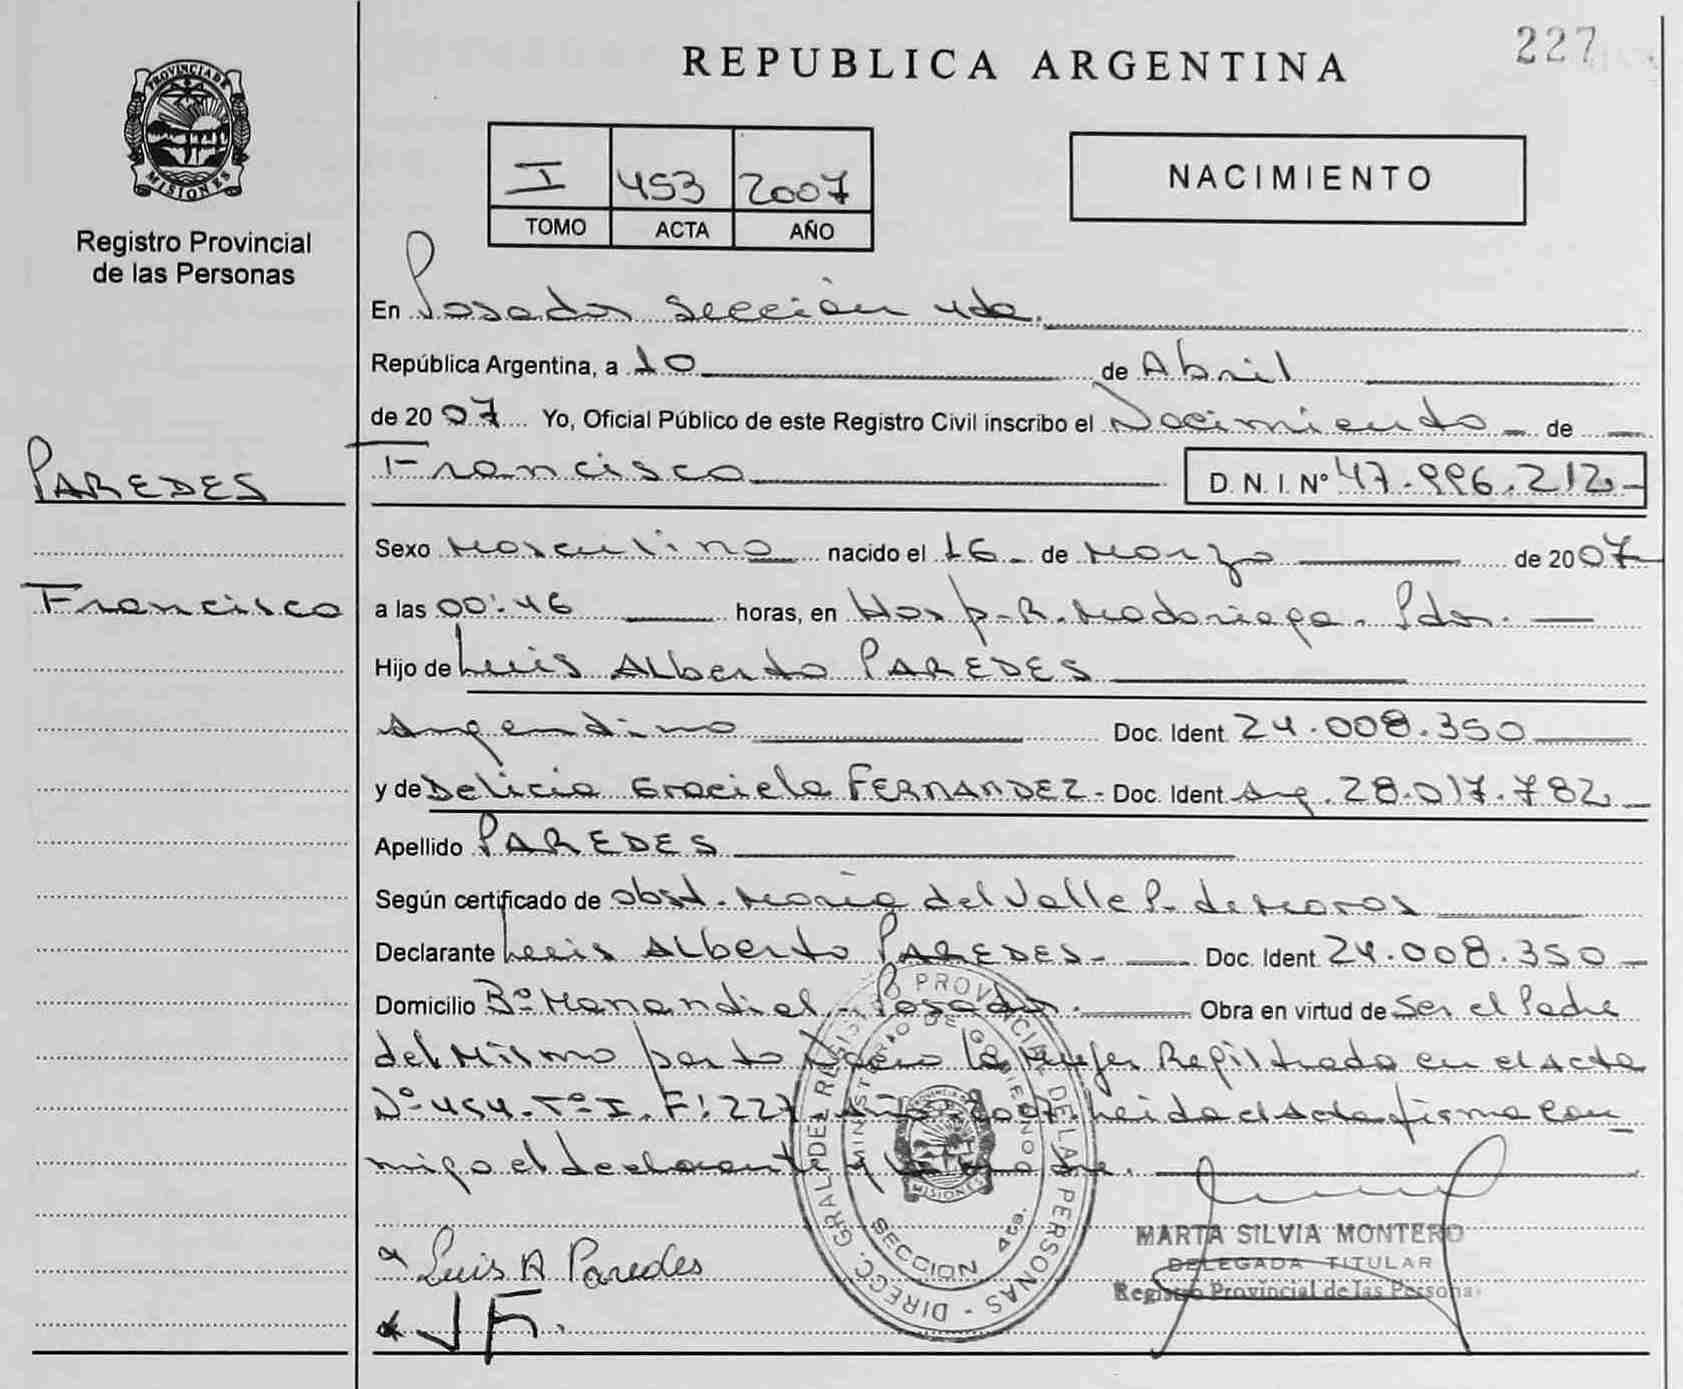 227
REPUBLICA ARGENTINA
PROVINCIA DE MISIONES
Registro Provincial
de las Personas
I 453 2007
TOMO ACTA AÑO
NACIMIENTO
En Posadas sección 4ta.
República Argentina, a 10 de Abril
de 2007 Yo, Oficial Público de este Registro Civil inscribo el Nacimiento de
PAREDES
Francisco
Francisco D.N.I. Nº 47.996.212
Sexo Masculino nacido el 16 de Marzo de 2007
a las 00:46 horas, en Hosp. R. Madariaga. Pdas.
Hijo de Luis Alberto PAREDES
Argentino Doc. Ident. 24.008.350
y de Delicia Graciela FERNANDEZ - Doc. Ident. Arg. 28.017.782
Apellido PAREDES
Según certificado de obst. María del Valle P. de
Declarante Luis Alberto PAREDES - Doc. Ident. 24.008.350
Domicilio Bº Manantial - Posadas. Obra en virtud de Ser el Padre
del Mismo parto nació la Mujer Registrada en el acta
Nº 454. Tº I. F: 227 Año 2007 Leida el Acta firma con
migo el declarante y la madre.
DIRECC. GRAL. DEL REGISTRO PROVINCIAL DE LAS PERSONAS
MINISTERIO DE GOBIERNO
MISIONES
SECCION 4ta.
Luis A Paredes
J F.
MARTA SILVIA MONTERO
DELEGADA TITULAR
Registro Provincial de las Personas